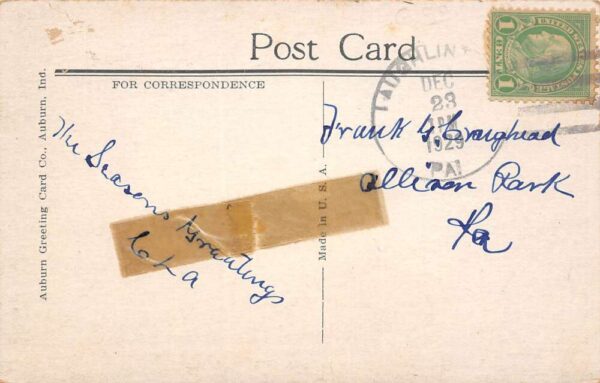 Post Card
FOR CORRESPONDENCE
Auburn Greeting Card Co., Auburn, Ind.
Made in U. S. A.
The Seasons
Greetings
1
CENT
1
UNITED STATES POSTAGE
LAUGHLIN
DEC
23
1 PM
1929
PA
Frank G. Craighead
Allison Park
Pa